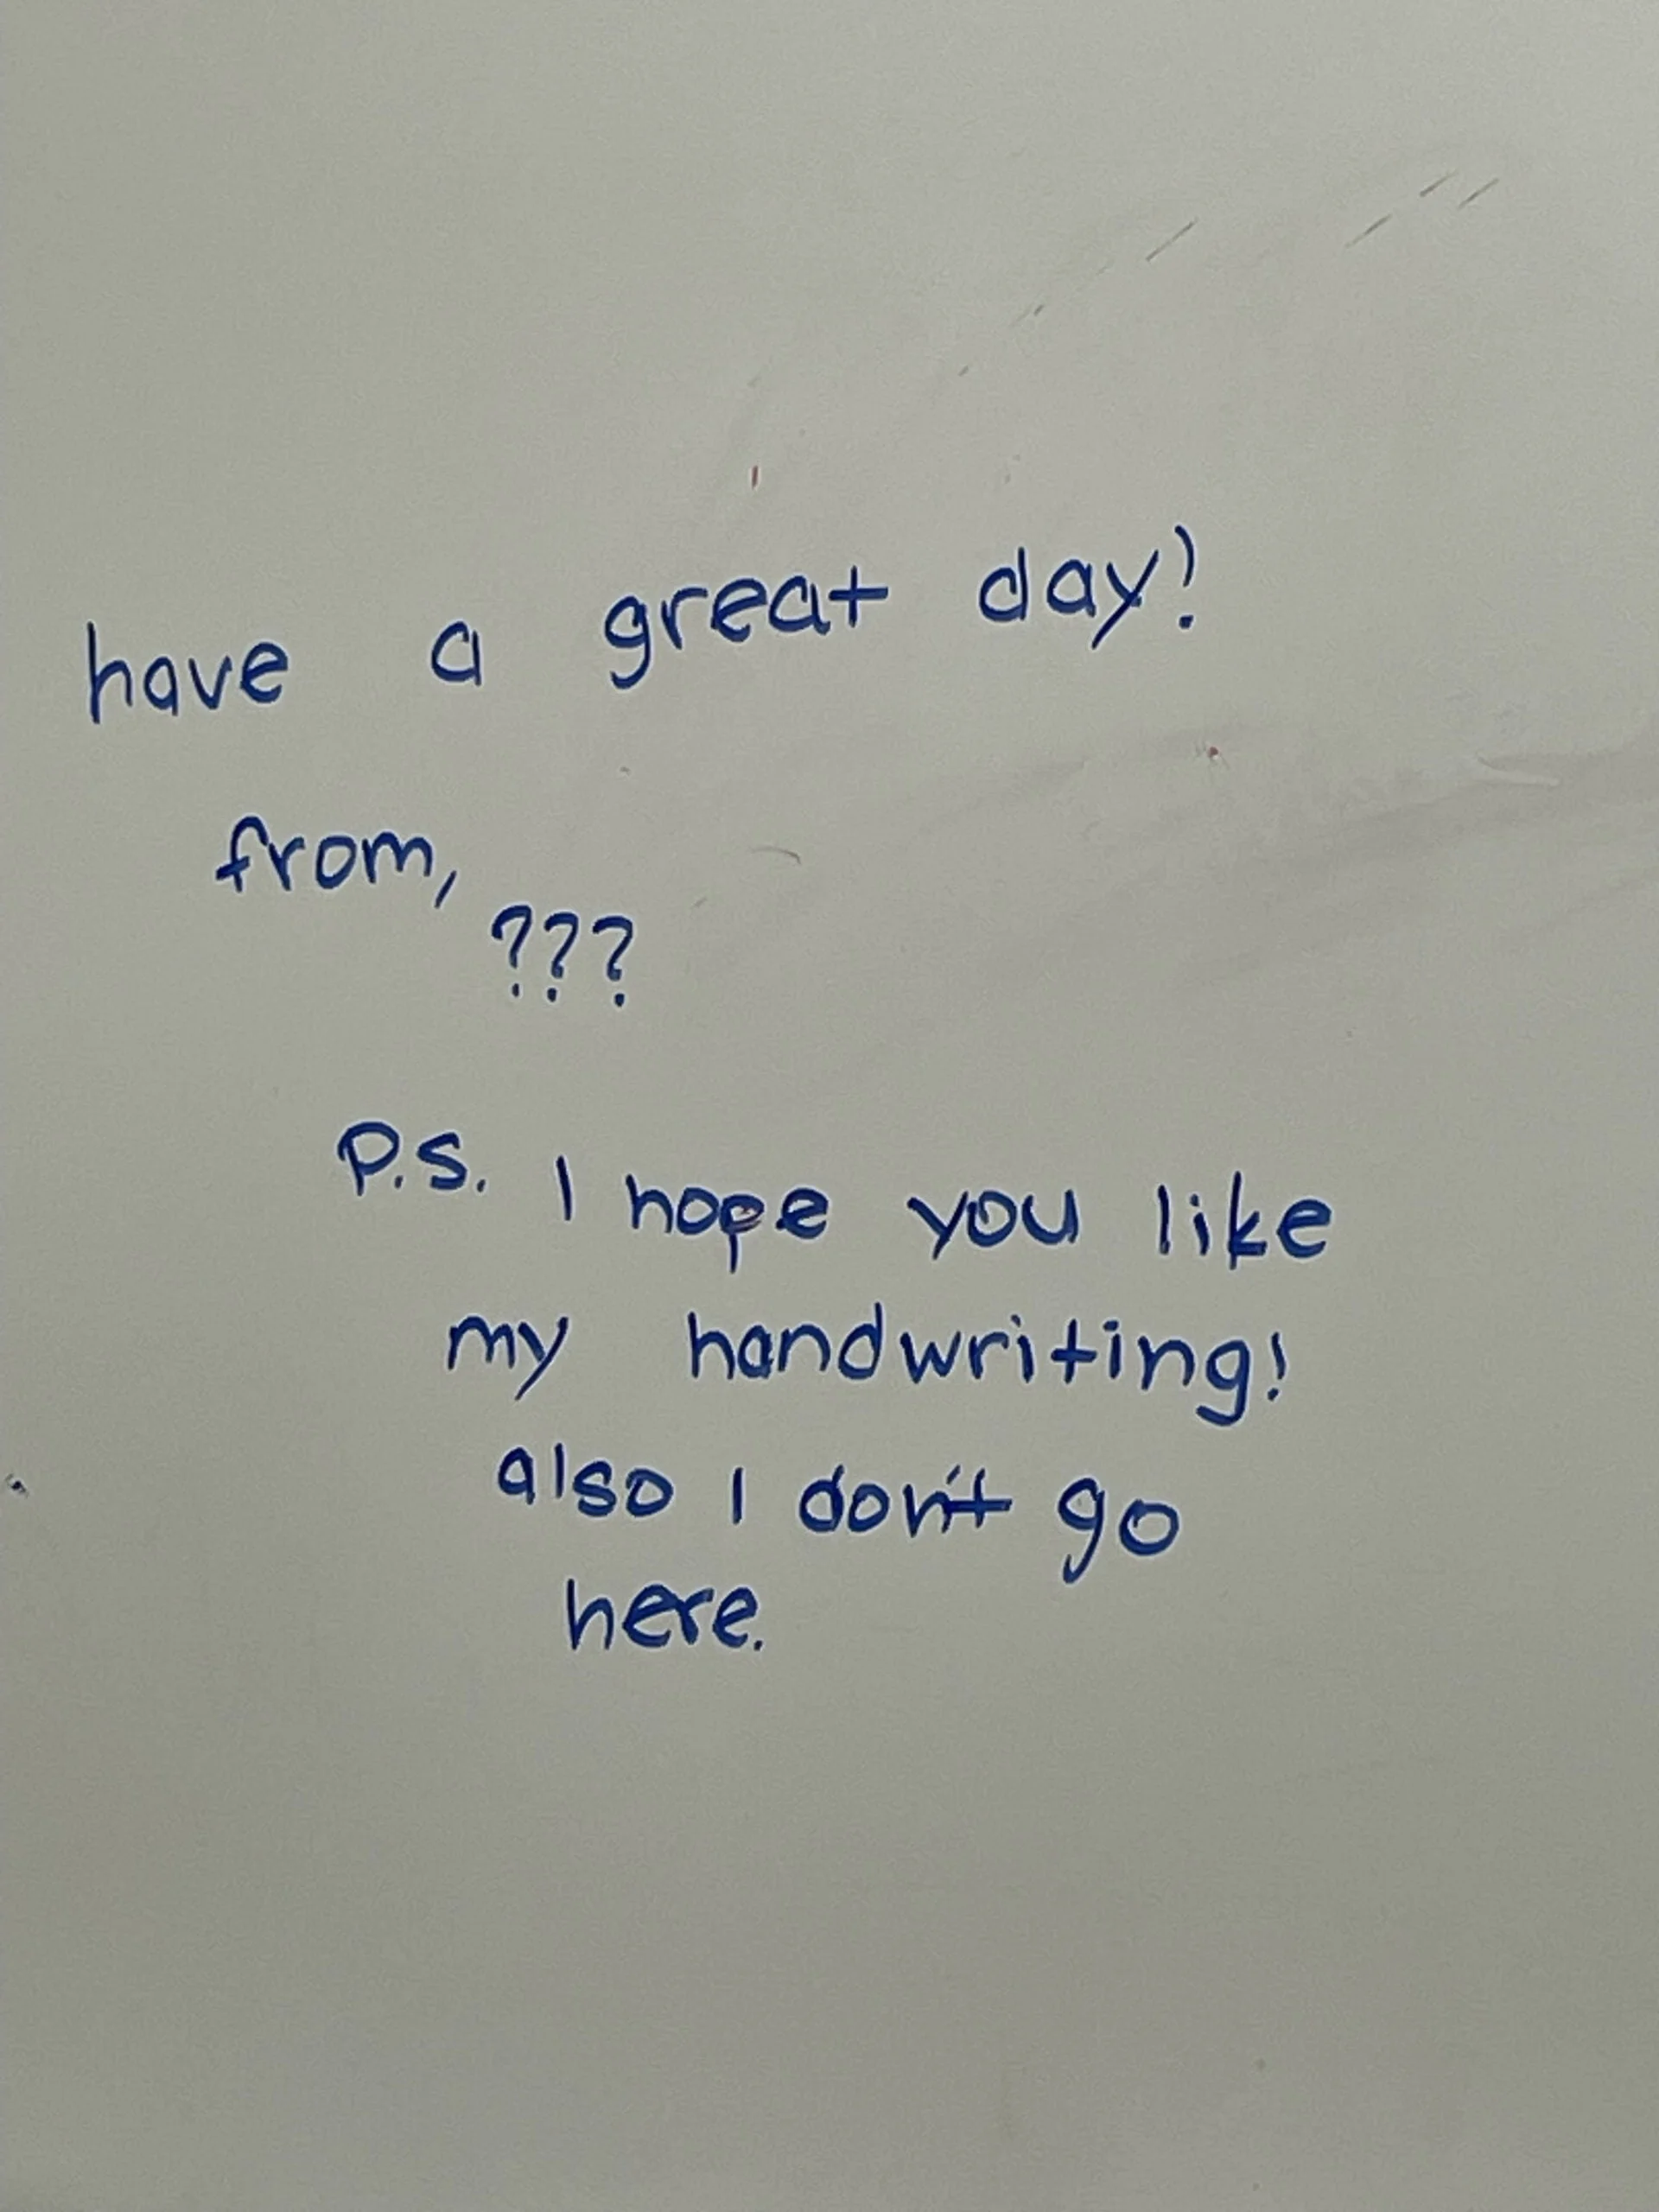 have a great day!
from,
???
P.S. I hope you like
my handwriting!
also I don't go
here.